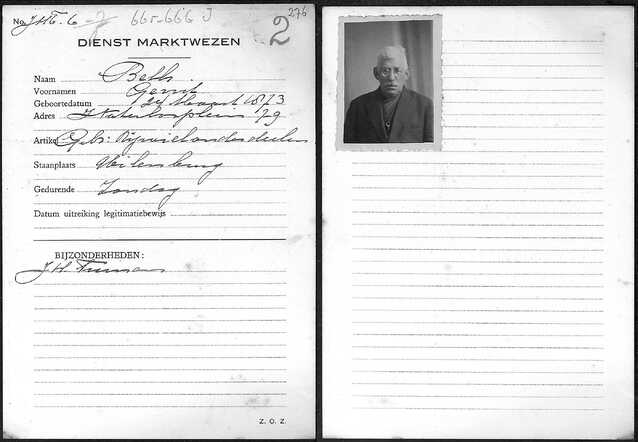 No. 665-666 J 276
2
DIENST MARKTWEZEN
Naam Bebb
Voornamen Gerrit
Geboortedatum 24 Maart 1873
Adres Waterlooplein 79
Artikel Gebr. Rijwielonderdeelen
Staanplaats Uilenburg
Gedurende Zondag
Datum uitreiking legitimatiebewijs
BIJZONDERHEDEN:
J H
Z. O. Z.